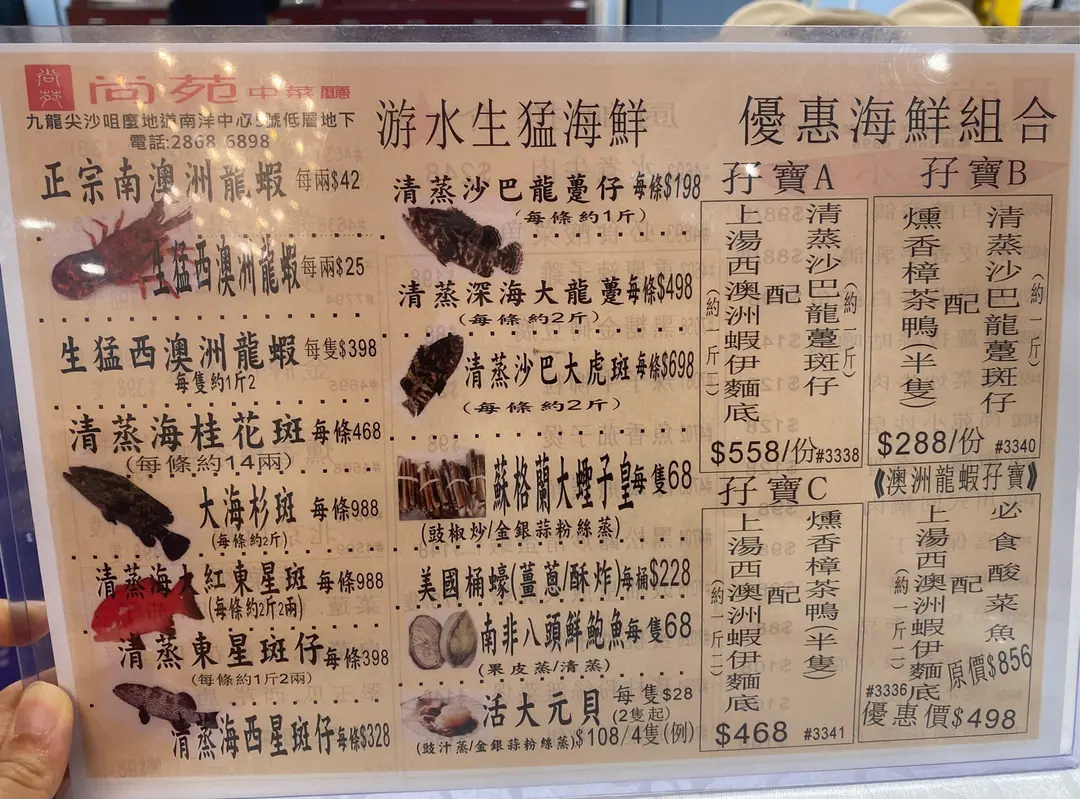 尚苑
尚苑中菜廳
九龍尖沙咀麼地道南洋中心5號低層地下
電話:2868 6898
游水生猛海鮮
優惠海鮮組合
正宗南澳洲龍蝦 每兩$42
生猛西澳洲龍蝦 每兩$25
生猛西澳洲龍蝦 每隻$398
每隻約1斤2
清蒸海桂花斑 每條468
(每條約14兩)
大海杉斑 每條988
(每條約2斤)
清蒸海大紅東星斑 每條988
(每條約2斤2兩)
清蒸東星斑仔 每條398
(每條約1斤2兩)
清蒸海西星斑仔 每條$328
清蒸沙巴龍躉仔 每條$198
(每條約1斤)
清蒸深海大龍躉 每條$498
(每條約2斤)
清蒸沙巴大虎斑 每條$698
(每條約2斤)
蘇格蘭大蟶子皇 每隻68
(豉椒炒/金銀蒜粉絲蒸)
美國桶蠔(薑蔥/酥炸) 每桶$228
南非八頭鮮鮑魚 每隻68
(果皮蒸/清蒸)
活大元貝 每隻$28
(2隻起)
(豉汁蒸/金銀蒜粉絲蒸)$108/4隻(例)
孖寶A
清蒸沙巴龍躉斑仔
(約一斤)
配
上湯西澳洲蝦伊麵底
(約一斤二)
$558/份 #3338
孖寶B
清蒸沙巴龍躉斑仔
(約一斤)
配
燻香樟茶鴨(半隻)
$288/份 #3340
孖寶C
燻香樟茶鴨(半隻)
配
上湯西澳洲蝦伊麵底
(約一斤二)
$468 #3341
《澳洲龍蝦孖寶》
必食酸菜魚
配
上湯西澳洲蝦伊麵底
(約一斤二)
原價$856
#3336
優惠價$498